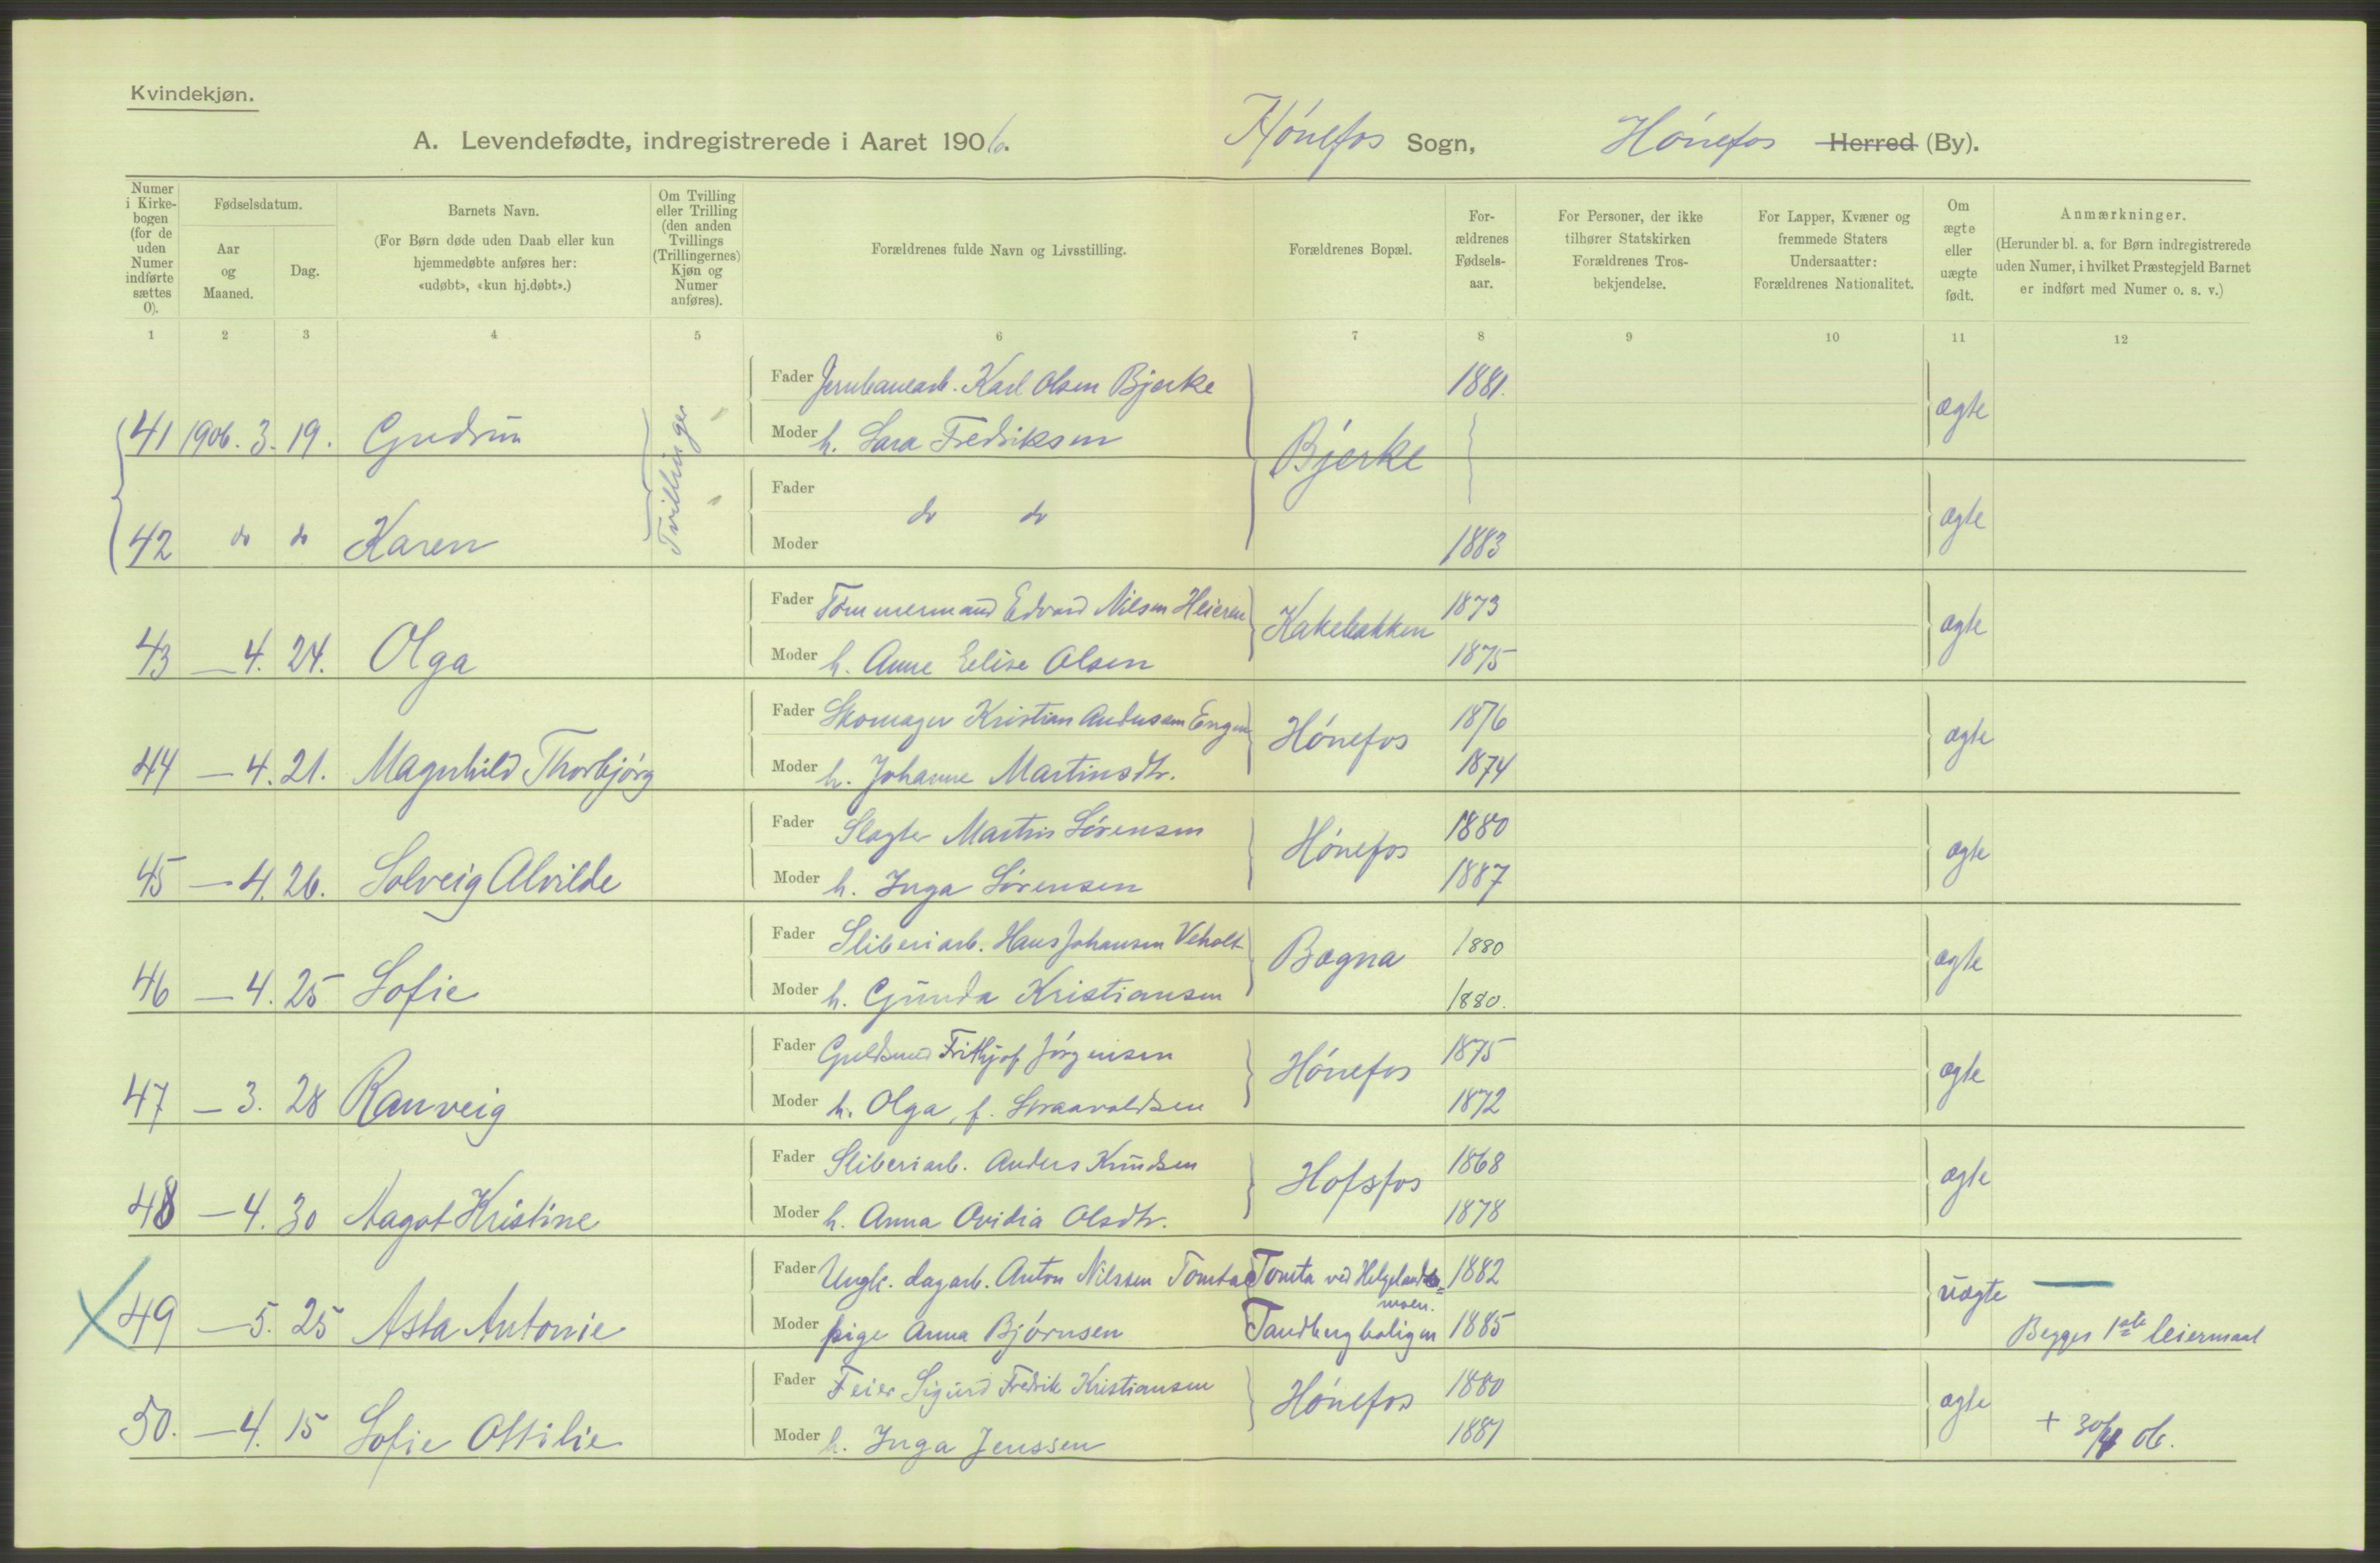 Kvindekjøn.
A. Levendefødte, indregistrerede i Aaret 1906. Hónefos Sogn, Hónefos Herred (By).
Numer i Kirkebogen (for de uden Numer indførte sættes 0).
Fødselsdatum.
Aar og Maaned.
Dag.
Barnets Navn.
(For Børn døde uden Daab eller kun hjemmedøbte anføres her: «udøbt», «kun hj.døbt».)
Om Tvilling eller Trilling (den anden Tvillings (Trillingernes) Kjøn og Numer anføres).
Forældrenes fulde Navn og Livsstilling.
Forældrenes Bopæl.
Forældrenes Fødselsaar.
For Personer, der ikke tilhører Statskirken Forældrenes Trosbekjendelse.
For Lapper, Kvæner og fremmede Staters Undersaatter: Forældrenes Nationalitet.
Om ægte eller uægte født.
Anmærkninger.
(Herunder bl. a. for Børn indregistrerede uden Numer, i hvilket Præstegjeld Barnet er indført med Numer o. s. v.)
1 2 3 4 5 6 7 8 9 10 11 12
Fader Jernbanearb. Karl Olsen Bjerke 1881. ægte
41 1906. 3. 19. Gudrun Tvillinger Moder h. Sara Fredriksen Bjerke
Fader do do ægte
42 do do Karen Moder 1883
Fader Tømmermand Edvard Nilsen Heieren Kakebakken 1873 ægte
43 — 4. 24. Olga Moder h. Anne Elise Olsen 1875
Fader Skomager Kristian Andersen Engen Hónefos 1876 ægte
44 — 4. 21. Magnhild Thorbjórg Moder h. Johanne Martinsdtr. 1874
Fader Slagter Martin Sórensen Hónefos 1880 ægte
45 — 4. 26. Solveig Alvilde Moder h. Inga Sórensen 1887
Fader Sliberiarb. Hans Johansen Veholt Bægna 1880 ægte
46 — 4. 25 Sofie Moder h. Gunda Kristiansen 1880.
Fader Guldsmed Frithjof Jórgensen Hónefos 1875 ægte
47 — 3. 28 Ranveig Moder h. Olga, f. 1872
Fader Sliberiarb. Anders Knudsen Hofsfos 1868 ægte
48 — 4. 30 Aagot Kristine Moder h. Anna Ovidia Olsdtr. 1878
Fader Ungk. dagarb. Anton Nilssen Tomta Tomta ved Helgelands= 1882 uægte —
moen.
49 — 5. 25 Asta Antonie Moder pige Anna Bjórnsen Tandbergboligen 1885 Begges 1ste leiermaal
Fader Feier Sigurd Fredrik Kristiansen Hónefos 1880 ægte
50. — 4. 15 Sofie Ottilie Moder h. Inga Jenssen 1881 + 30/4 06.